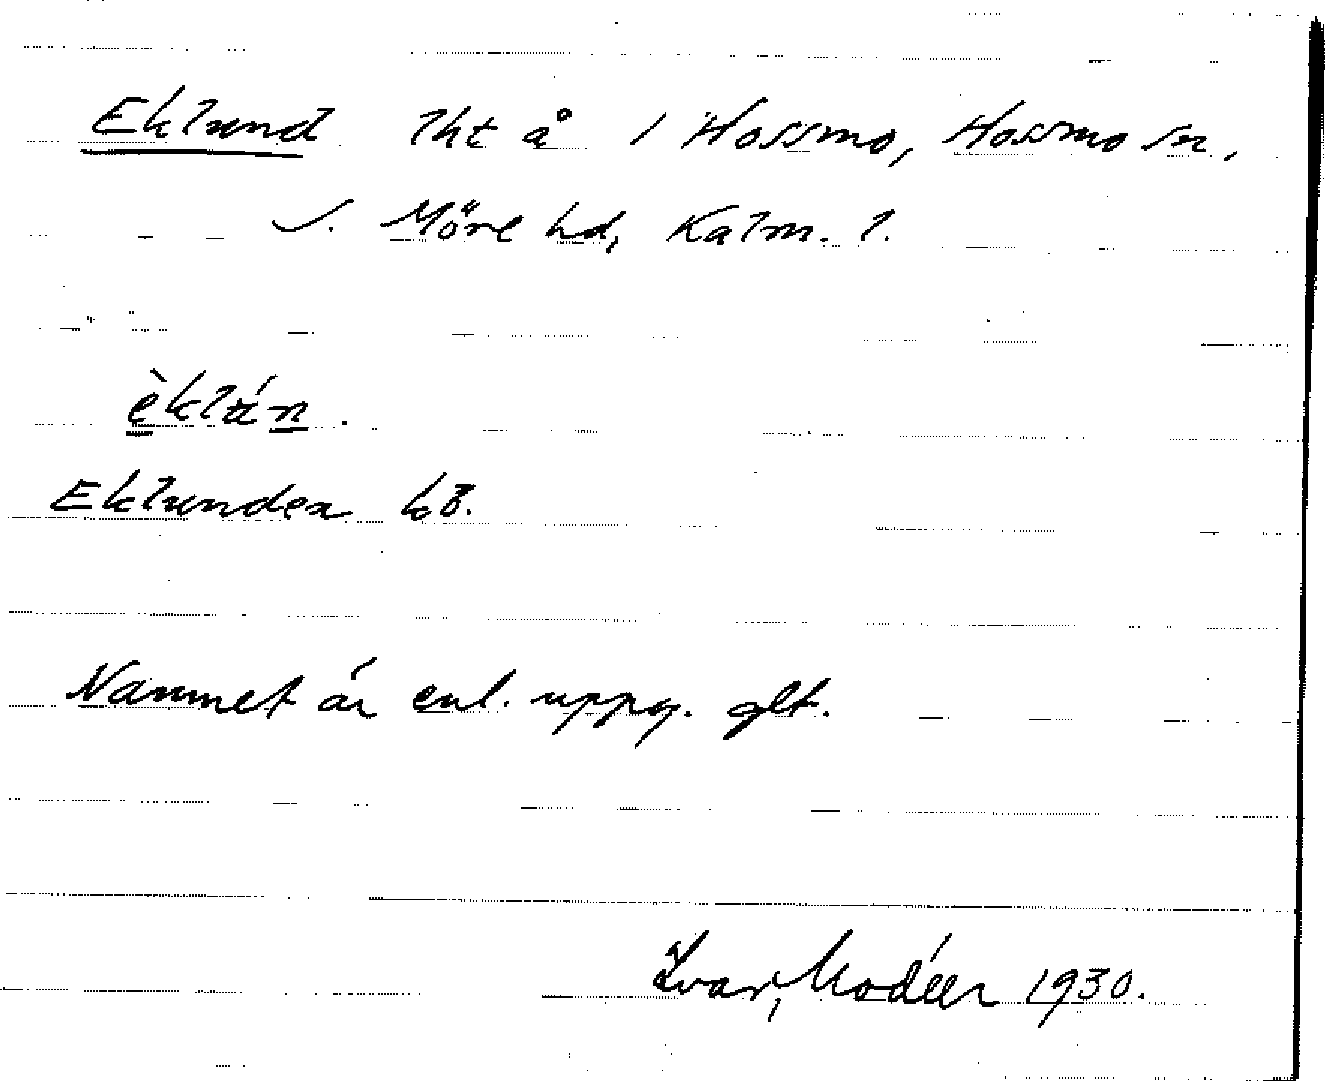 Eklund lht å 1 Hossmo, Hossmo sn,
S. Möre hd, Kalm. l.
èklán.
Eklunden
Namnet är enl. uppg. glt.
Ivar Modéer 1930.